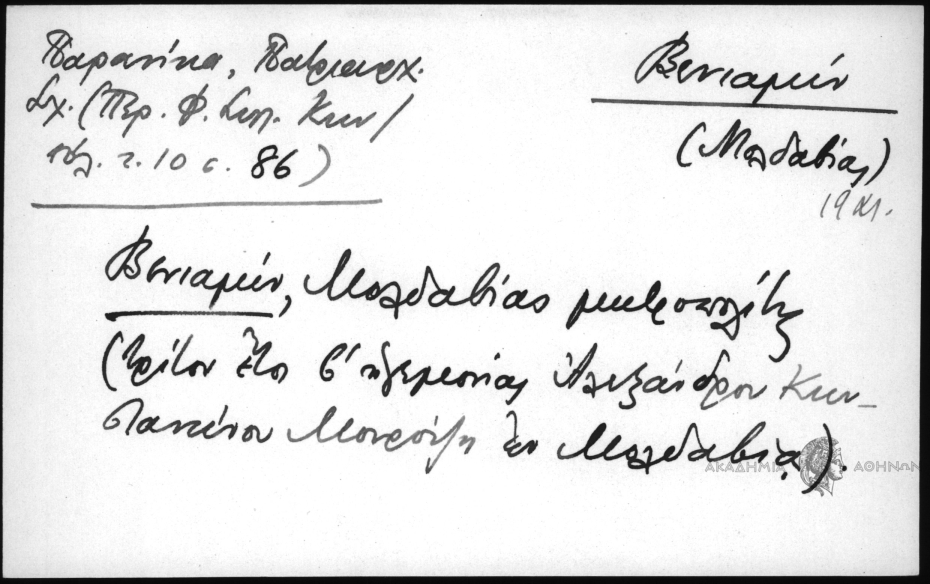 Παρανίκα, Πατριαρχ.
Σχ. (Περ. Φ. Συλ. Κων/
πόλ. τ. 10 σ. 86)
Βενιαμίν
(Μολδαβίας)
19 αι.
Βενιαμίν, Μολδαβίας μητροπολίτης
(τρίτον ἔτος β' ἡγεμονίας Ἀλεξάνδρου Κων-
σταντίνου Μουρούζη ἐν Μολδαβίᾳ).
ΑΚΑΔΗΜΙΑ ΑΘΗΝΩΝ